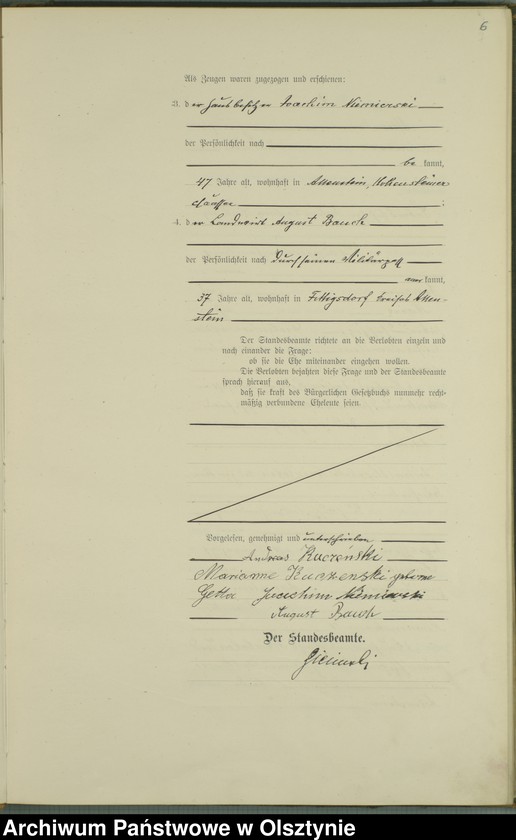 6
Als Zeugen waren zugezogen und erschienen:
3. der Hausbesitzer Joachim Niemierski
der Persönlichkeit nach
be kannt,
47 Jahre alt, wohnhaft in Allenstein, Hohensteiner
chaussee;
4. der Landwirt August Bauch
der Persönlichkeit nach durch seinen Militärpaß
aner kannt,
37 Jahre alt, wohnhaft in Fittigsdorf Kreises Allen-
stein
Der Standesbeamte richtete an die Verlobten einzeln und
nach einander die Frage:
ob sie die Ehe miteinander eingehen wollen.
Die Verlobten bejahten diese Frage und der Standesbeamte
sprach hierauf aus,
daß sie kraft des Bürgerlichen Gesetzbuchs nunmehr recht-
mäßig verbundene Eheleute seien.
Vorgelesen, genehmigt und unterschrieben
Andreas Kuczenski
Marianne Kuczenski geborne
Joachim Niemierski
August Bauch
Der Standesbeamte.
Archiwum Państwowe w Olsztynie